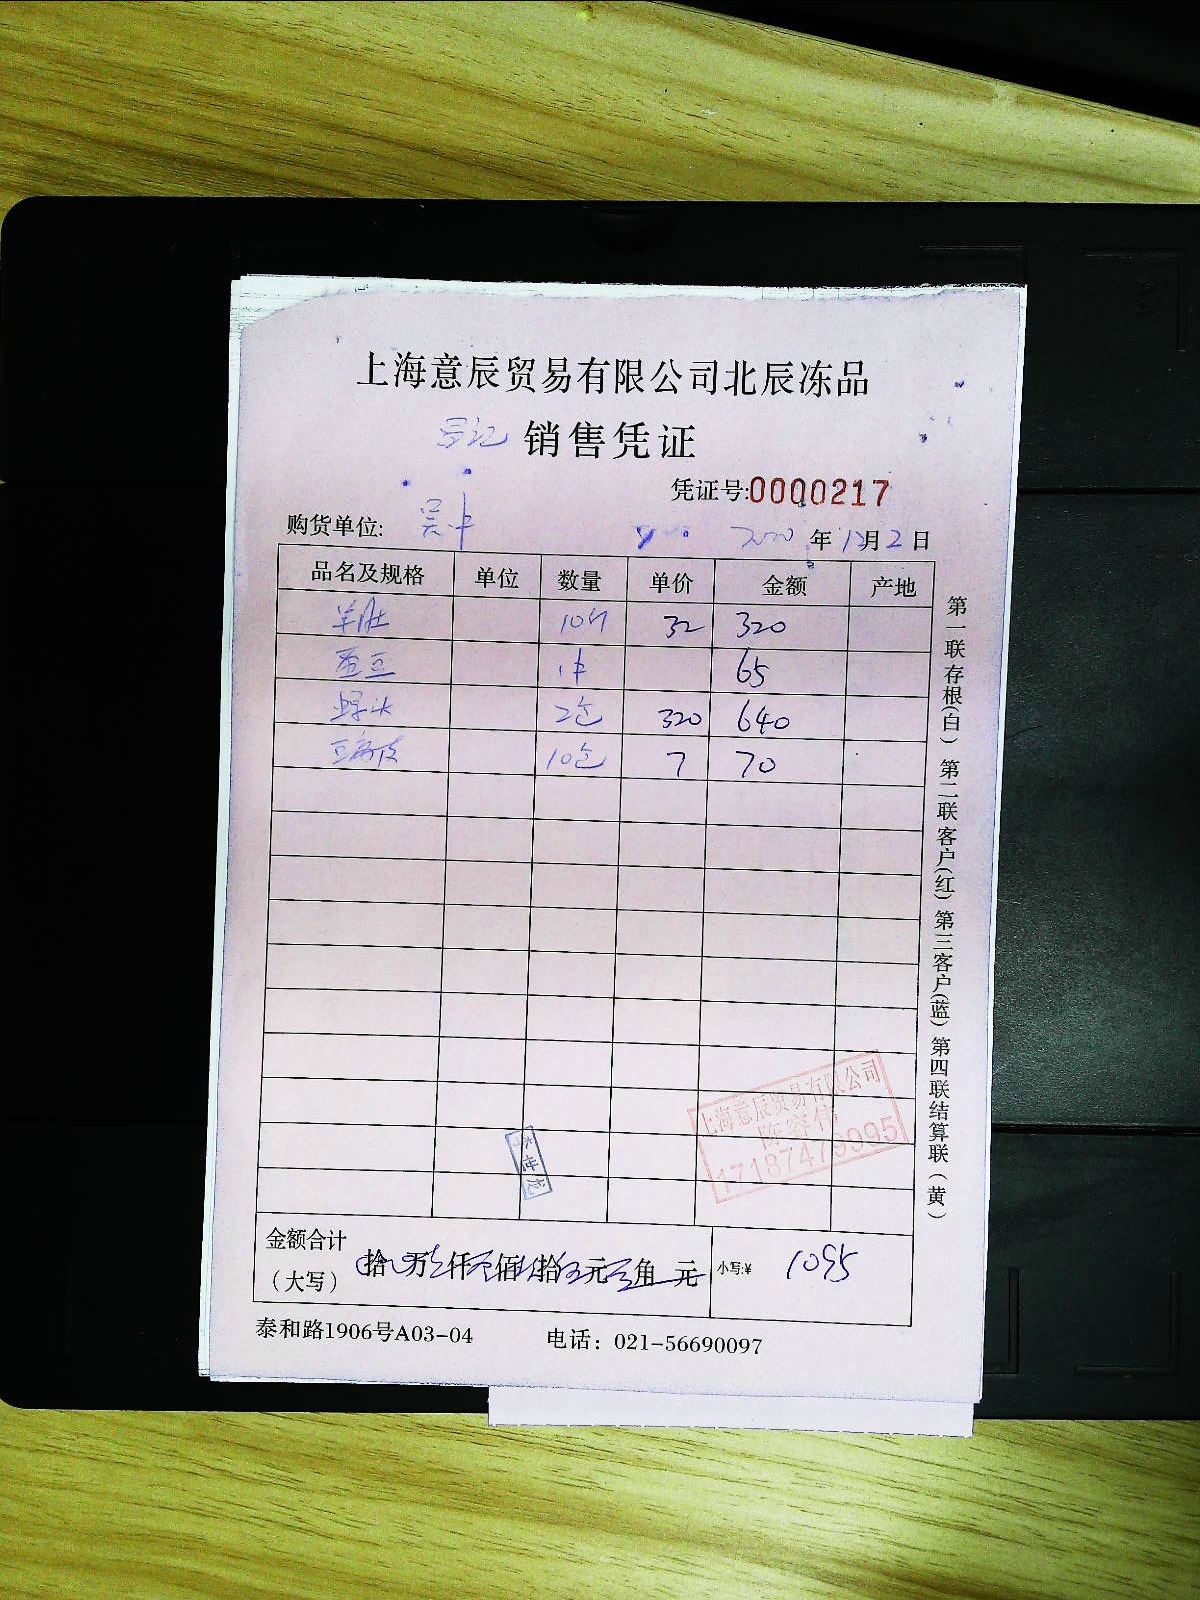 上海意辰贸易有限公司北辰冻品
号记 销售凭证
凭证号:0000217
购货单位: 吴中 2020 年 12 月 2 日
品名及规格 单位 数量 单价 金额 产地
羊肚 10斤 32 320
蚕豆 1件 65
螺头 2包 320 640
豆腐皮 10包 7 70
金额合计
(大写) 拾 万 仟 佰 拾 元 角 元 小写:¥ 1095
泰和路1906号A03-04 电话: 021-56690097
第一联存根(白) 第二联客户(红) 第三客户(蓝) 第四联结算联(黄)
上海意辰贸易有限公司
17187479995
世龙